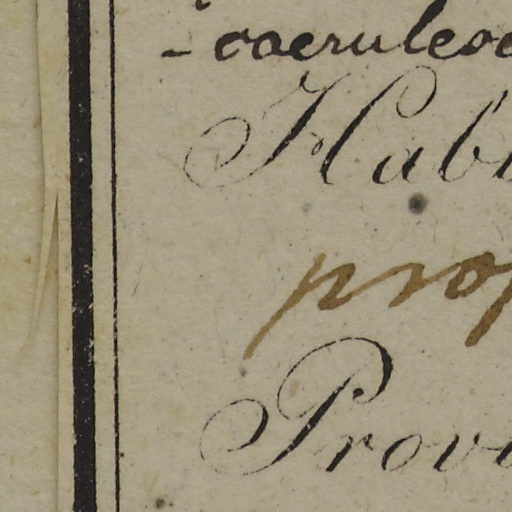 -coerulea
Hab
prop
Prov